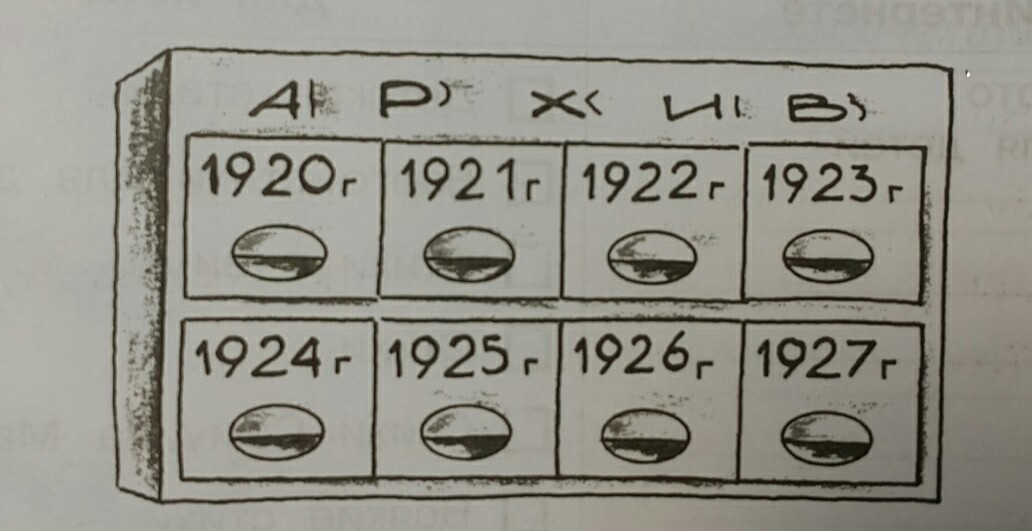 АРХИВ
1920г 1921г 1922г 1923г
1924г 1925г 1926г 1927г